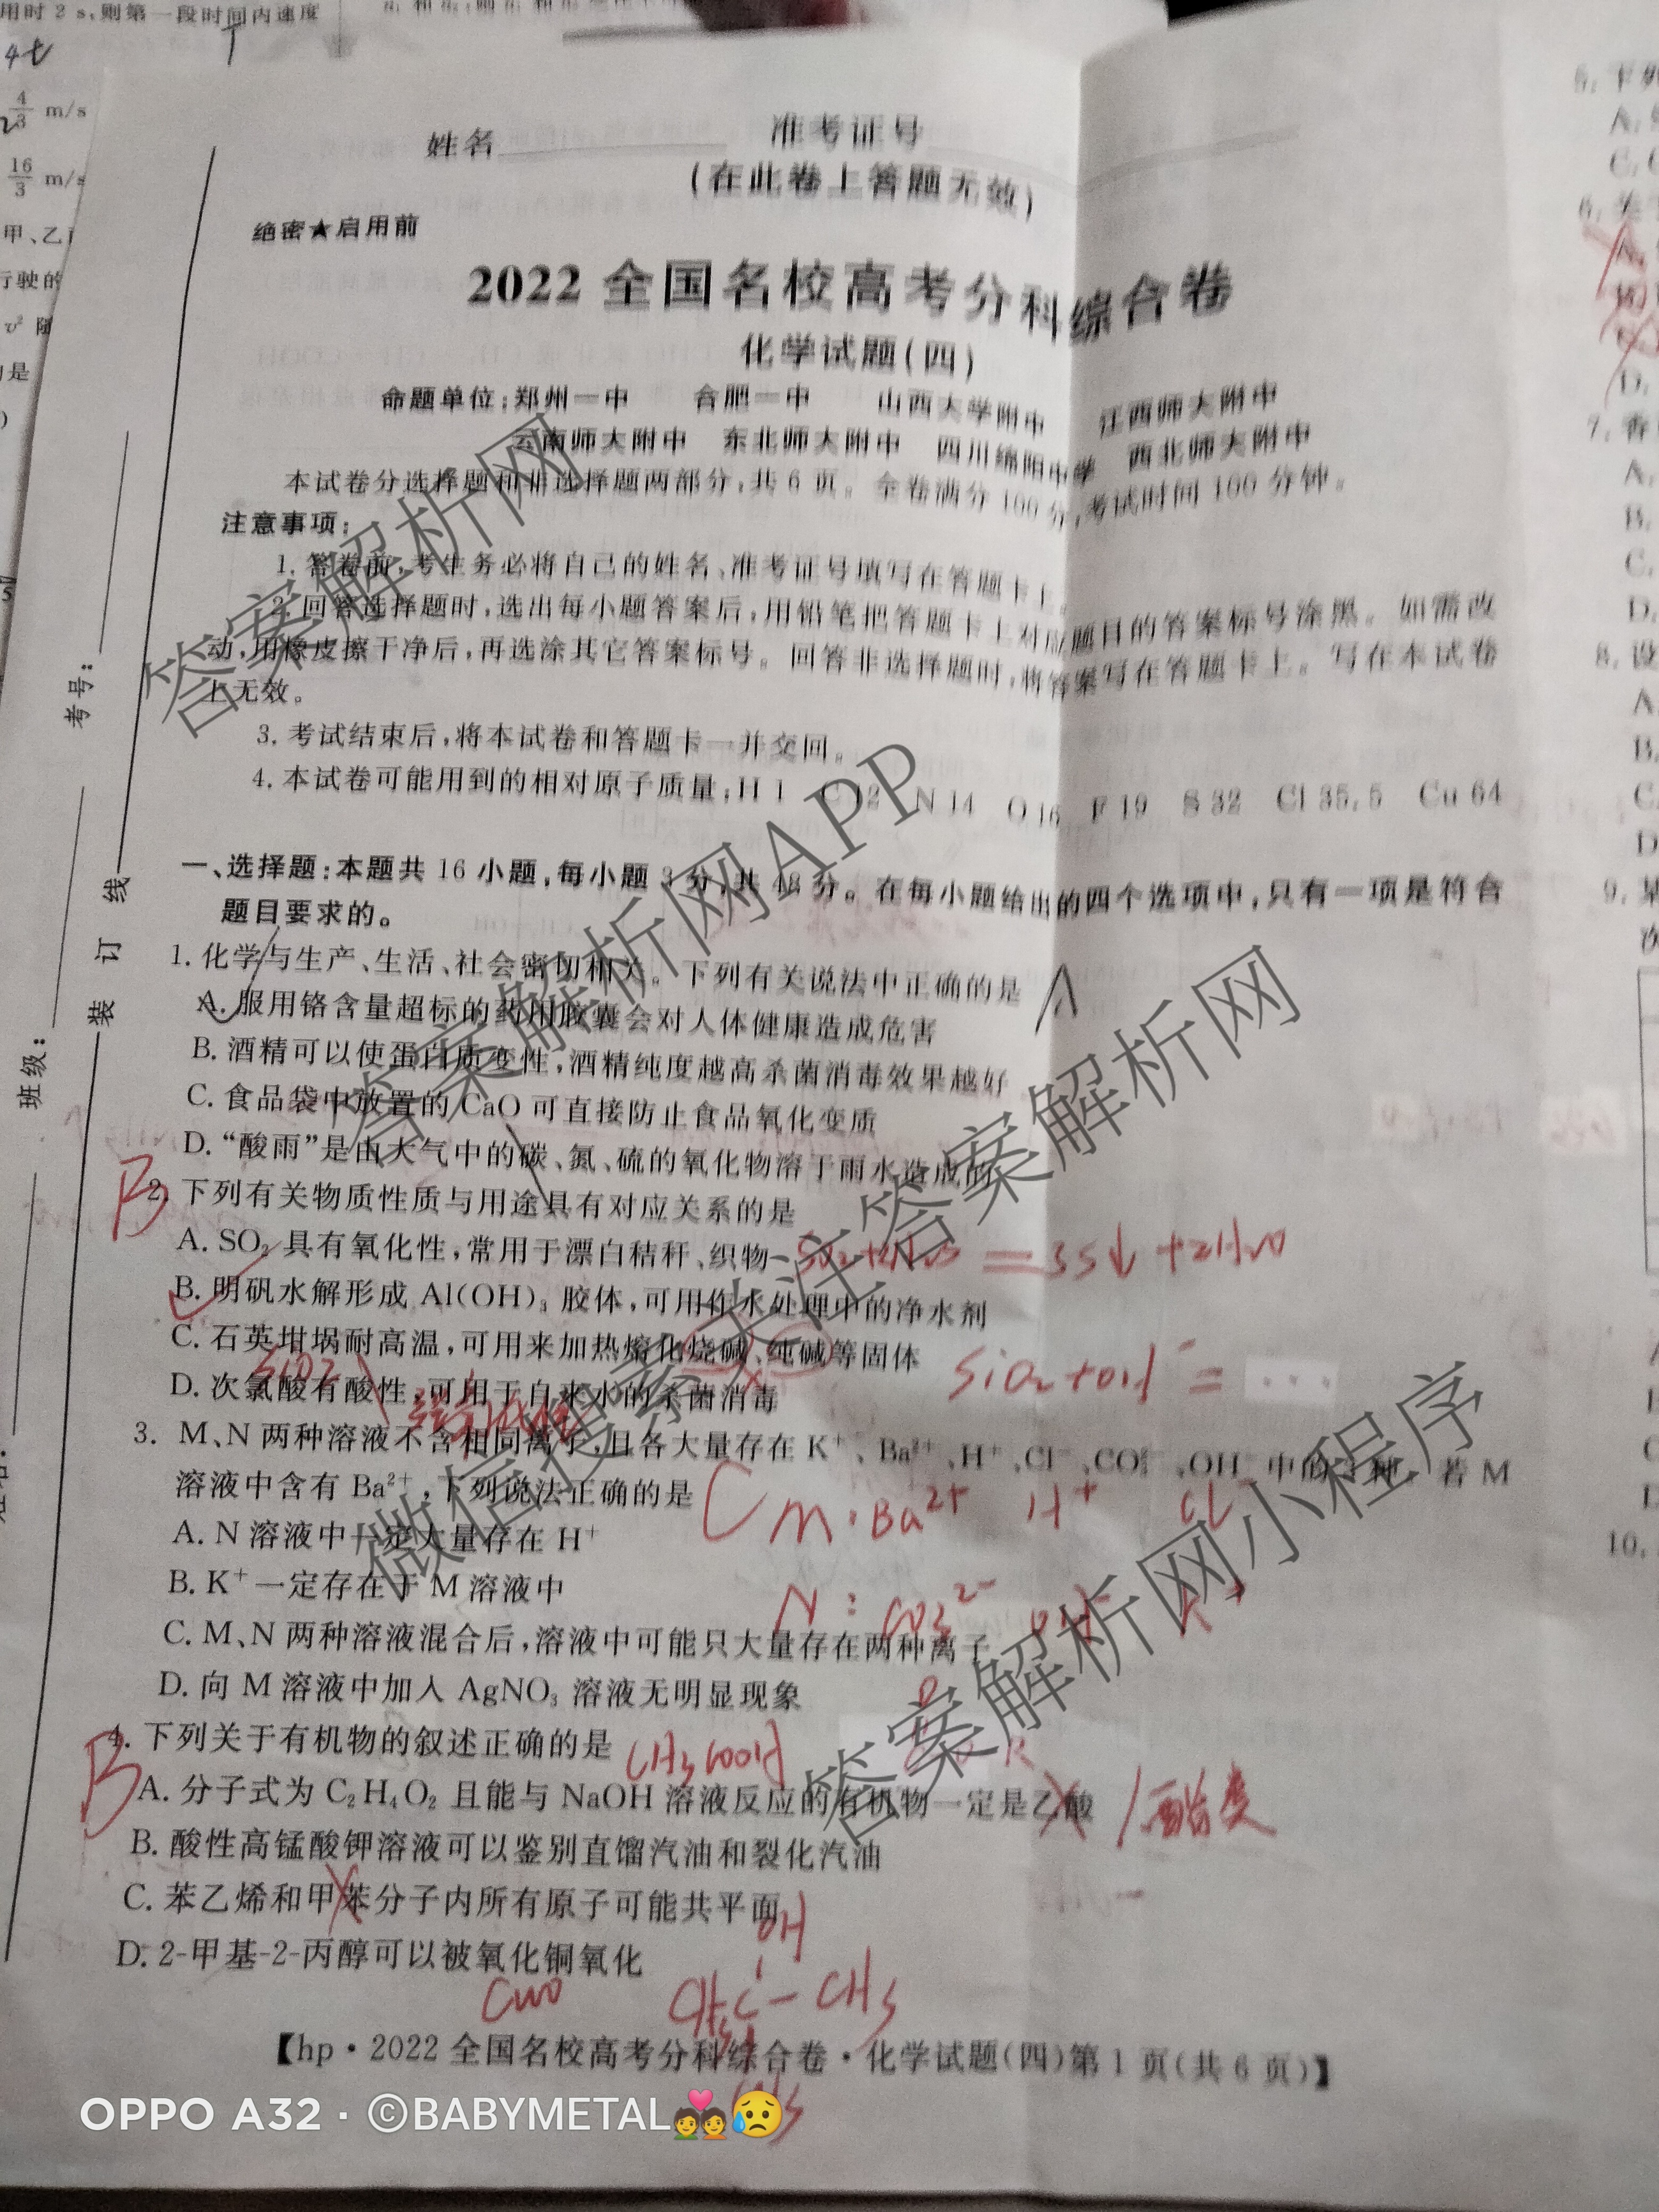 用时 2 s,则第一段时间内速度
4/3 m/s
16/3 m/s
甲、乙
行驶的
姓名 准考证号
(在此卷上答题无效)
绝密★启用前
2022 全国名校高考分科综合卷
化学试题(四)
命题单位:郑州一中 合肥一中 山西大学附中 江西师大附中
云南师大附中 东北师大附中 四川绵阳中学 西北师大附中
本试卷分选择题和非选择题两部分,共 6 页。全卷满分 100 分,考试时间 100 分钟。
注意事项:
1. 答卷前,考生务必将自己的姓名、准考证号填写在答题卡上。
2. 回答选择题时,选出每小题答案后,用铅笔把答题卡上对应题目的答案标号涂黑。如需改
动,用橡皮擦干净后,再选涂其它答案标号。回答非选择题时,将答案写在答题卡上。写在本试卷
上无效。
3. 考试结束后,将本试卷和答题卡一并交回。
4. 本试卷可能用到的相对原子质量:H 1 C 12 N 14 O 16 F 19 S 32 Cl 35.5 Cu 64
一、选择题:本题共 16 小题,每小题 3 分,共 48 分。在每小题给出的四个选项中,只有一项是符合
题目要求的。
1. 化学与生产、生活、社会密切相关。下列有关说法中正确的是 A
A. 服用铬含量超标的药用胶囊会对人体健康造成危害
B. 酒精可以使蛋白质变性,酒精纯度越高杀菌消毒效果越好
C. 食品袋中放置的 CaO 可直接防止食品氧化变质
D. “酸雨”是由大气中的碳、氮、硫的氧化物溶于雨水造成的
B
2. 下列有关物质性质与用途具有对应关系的是
A. SO₂ 具有氧化性,常用于漂白秸秆、织物
SO₂+2H₂S = 3S↓+2H₂O
B. 明矾水解形成 Al(OH)₃ 胶体,可用作水处理中的净水剂
C. 石英坩埚耐高温,可用来加热熔化烧碱、纯碱等固体
SiO₂ SiO₂+OH⁻ = ...
D. 次氯酸有酸性,可用于自来水的杀菌消毒
3. M、N 两种溶液不含相同离子,且各大量存在 K⁺、Ba²⁺、H⁺、Cl⁻、CO₃²⁻、OH⁻ 中的三种。若 M
溶液中含有 Ba²⁺,下列说法正确的是 C
M: Ba²⁺ H⁺ Cl⁻
A. N 溶液中一定大量存在 H⁺
B. K⁺ 一定存在于 M 溶液中
N: CO₃²⁻ OH⁻ K⁺
C. M、N 两种溶液混合后,溶液中可能只大量存在两种离子
D. 向 M 溶液中加入 AgNO₃ 溶液无明显现象
B
4. 下列关于有机物的叙述正确的是
CH₃COOH
A. 分子式为 C₂H₄O₂ 且能与 NaOH 溶液反应的有机物一定是乙酸
B. 酸性高锰酸钾溶液可以鉴别直馏汽油和裂化汽油
C. 苯乙烯和甲苯分子内所有原子可能共平面
D. 2-甲基-2-丙醇可以被氧化铜氧化
CuO
OH
CH₃C-CH₃
CH₃
【hp·2022 全国名校高考分科综合卷·化学试题(四)第 1 页(共 6 页)】
考号:
班级:
装 订 线
答案解析网
答案解析网APP
微信搜索关注答案解析网
答案解析网小程序
OPPO A32 · ©BABYMETAL💑😥
5. 下列
6. 关
7. 香
8. 设
9. 某
10.